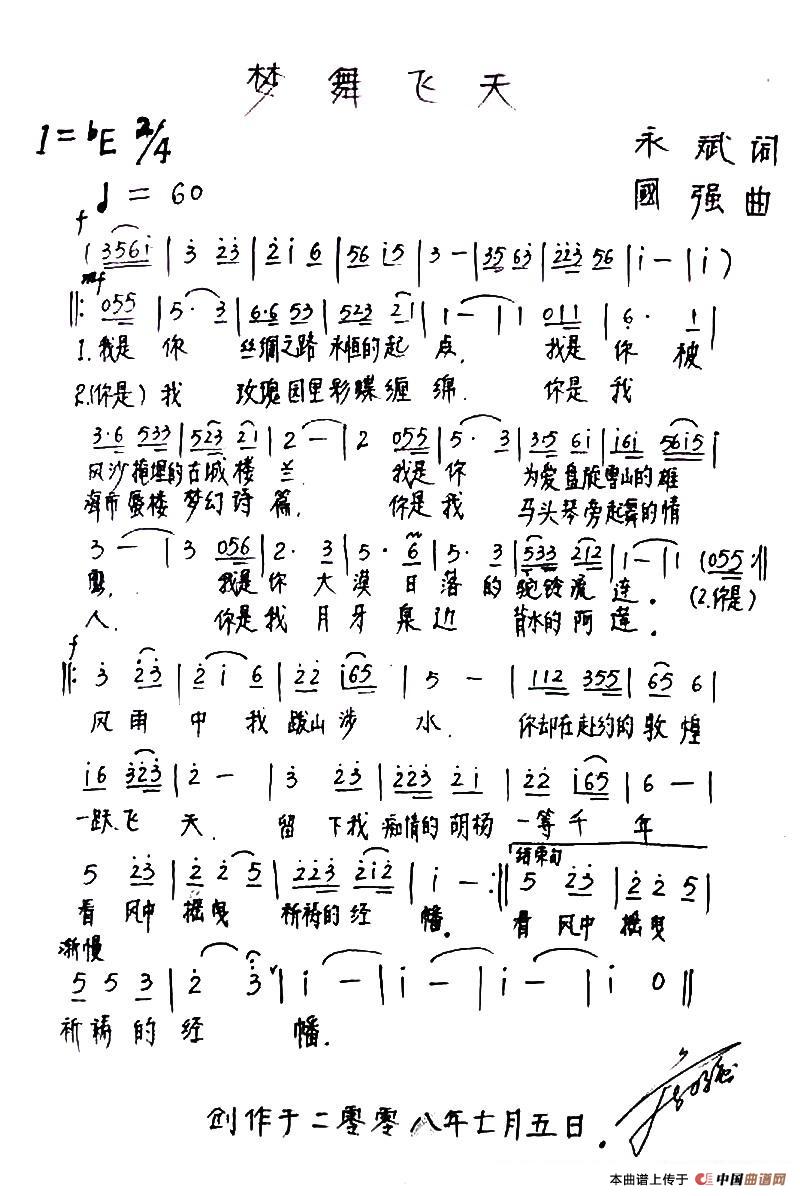 梦舞飞天
1=bE 2/4
永斌词
♩=60
國强曲
f
(3561̇ | 3̇ 2̇3̇ | 2̇1̇ 6 | 56 1̇5 | 3 — | 35 63 | 2̇2̇3̇ 56 | 1̇ — | 1̇ )
mf
‖: 055 | 5· 3 | 6·6 53 | 523 21 | 1 — | 1 011 | 6· 1 |
1.我是你 丝绸之路永恒的起点, 我是你被
2.(你是)我 玫瑰园里彩蝶缠绵. 你是我
3·6 533 | 523 21 | 2 — | 2 055 | 5· 3 | 35 61̇ | 1̇61̇ 561̇5 |
风沙掩埋的古城楼兰. 我是你 为爱盘旋雪山的雄
海市蜃楼梦幻诗篇. 你是我 马头琴旁起舞的情
3 — | 3 056 | 2· 3 | 5· 6 | 5· 3 | 533 212 | 1 — | 1 (055 :‖
鹰. 我是你大漠日落的驼铃流连. (2.你是)
人. 你是我月牙泉边 背水的阿莲.
f
‖: 3̇ 2̇3̇ | 2̇ 1̇ 6 | 2̇2̇ 1̇65 | 5 — | 112 355 | 65 6 |
风雨中我跋山涉水. 你却在赴约的敦煌
1̇6 3̇2̇3̇ | 2̇ — | 3̇ 2̇3̇ | 2̇2̇3̇ 2̇1̇ | 2̇2̇ 1̇65 | 6 — |
一跃飞天. 留下我痴情的胡杨一等千年
结束句
5 2̇3̇ | 2̇ 2̇ 5 | 2̇2̇3̇ 2̇1̇2̇ | 1̇ — :‖ 5 2̇3̇ | 2̇ 2̇ 5 |
看风中摇曳祈祷的经幡. 看风中摇曳
渐慢
5 5 3 | 2̇ 3̇ | 1̇ — | 1̇ — | 1̇ — | 1̇ — | 1̇ 0 ‖
祈祷的经幡.
创作于二零零八年七月五日.
本曲谱上传于 中国曲谱网